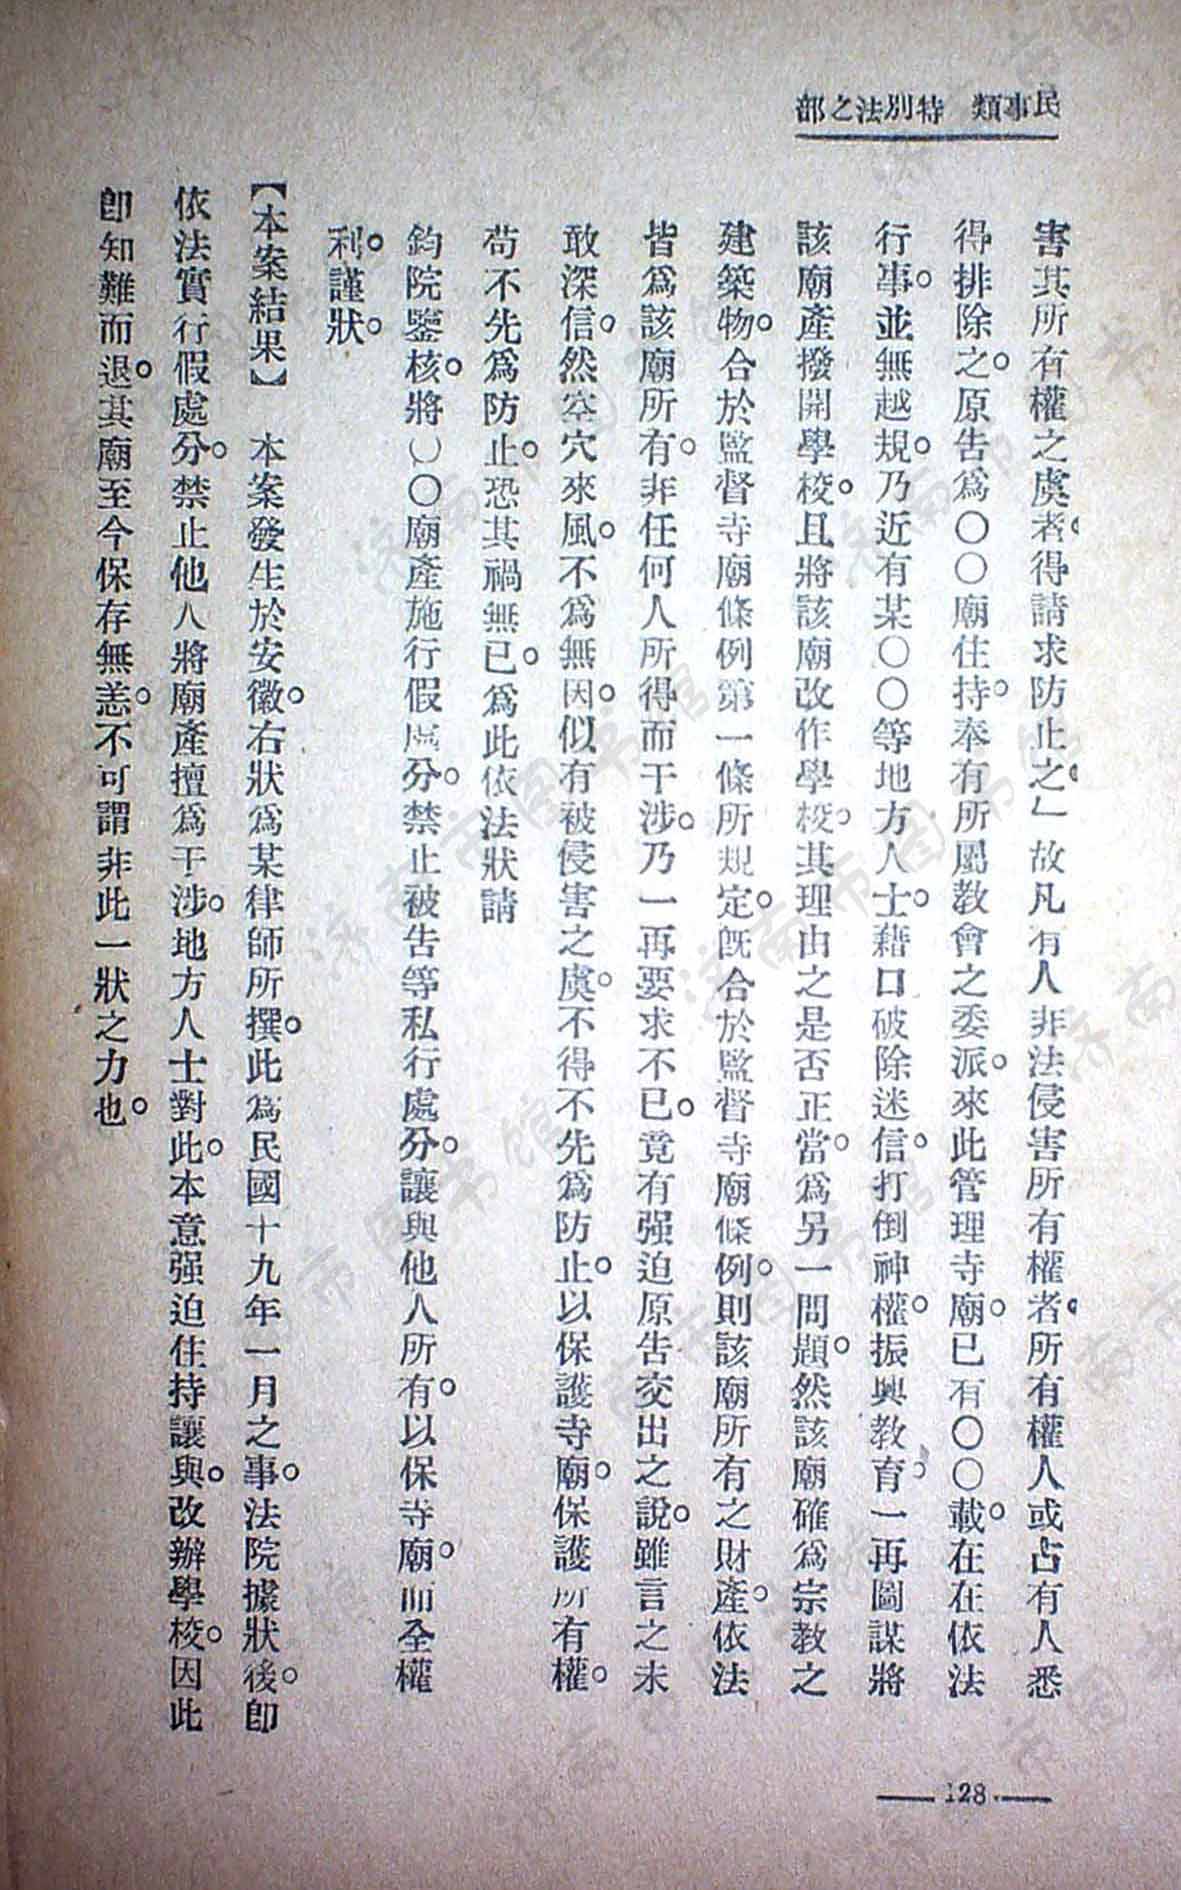 民事類　特別法之部
害其所有權之虞者。得請求防止之。」故凡有人非法侵害所有權者。所有權人或占有人悉
得排除之。原告爲〇〇廟住持。奉有所屬教會之委派。來此管理寺廟。已有〇〇載。在在依法
行事。並無越規。乃近有某〇〇等地方人士。藉口破除迷信。打倒神權。振興教育。一再圖謀將
該廟產撥開學校。且將該廟改作學校。其理由之是否正當。爲另一問題。然該廟確爲宗教之
建築物。合於監督寺廟條例第一條所規定。旣合於監督寺廟條例。則該廟所有之財產。依法
皆爲該廟所有。非任何人所得而干涉。乃一再要求不已。竟有强迫原告交出之說。雖言之未
敢深信。然空穴來風。不爲無因。似有被侵害之虞。不得不先爲防止。以保護寺廟。保護所有權。
苟不先爲防止。恐其禍無已。爲此依法狀請
鈞院鑒核。將〇〇廟產施行假處分。禁止被告等私行處分。讓與他人所有。以保寺廟。而全權
利。謹狀。
【本案結果】　本案發生於安徽。右狀爲某律師所撰。此爲民國十九年一月之事。法院據狀後。卽
依法實行假處分。禁止他人將廟產擅爲干涉。地方人士對此。本意强迫住持讓與。改辦學校。因此
卽知難而退。其廟至今保存無恙。不可謂非此一狀之力也。
128
济南市图书馆